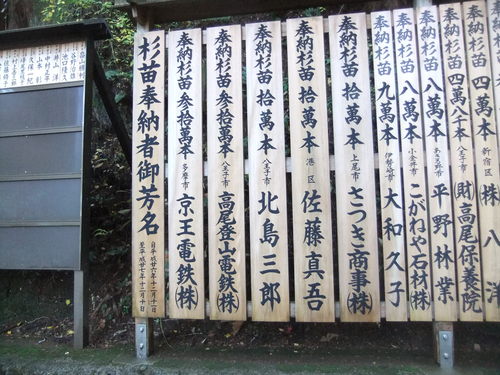 杉苗奉納者御芳名
自平成廿六年十二月十一日
至平成廿七年十二月十日
奉納杉苗 参拾萬本 多摩市 京王電鉄(株)
奉納杉苗 参拾萬本 八王子市 高尾登山電鉄(株)
奉納杉苗 拾萬本 八王子市 北島三郎
奉納杉苗 拾萬本 港区 佐藤真吾
奉納杉苗 拾萬本 上尾市 さつき商事(株)
奉納杉苗 九萬本 伊勢崎市 大和久子
奉納杉苗 八萬本 小金井市 こがねや石材(株)
奉納杉苗 八萬本 あきる野市 平野林業
奉納杉苗 四萬八千本 八王子市 (財)高尾保養院
奉納杉苗 四萬本 新宿区 (株)八洋